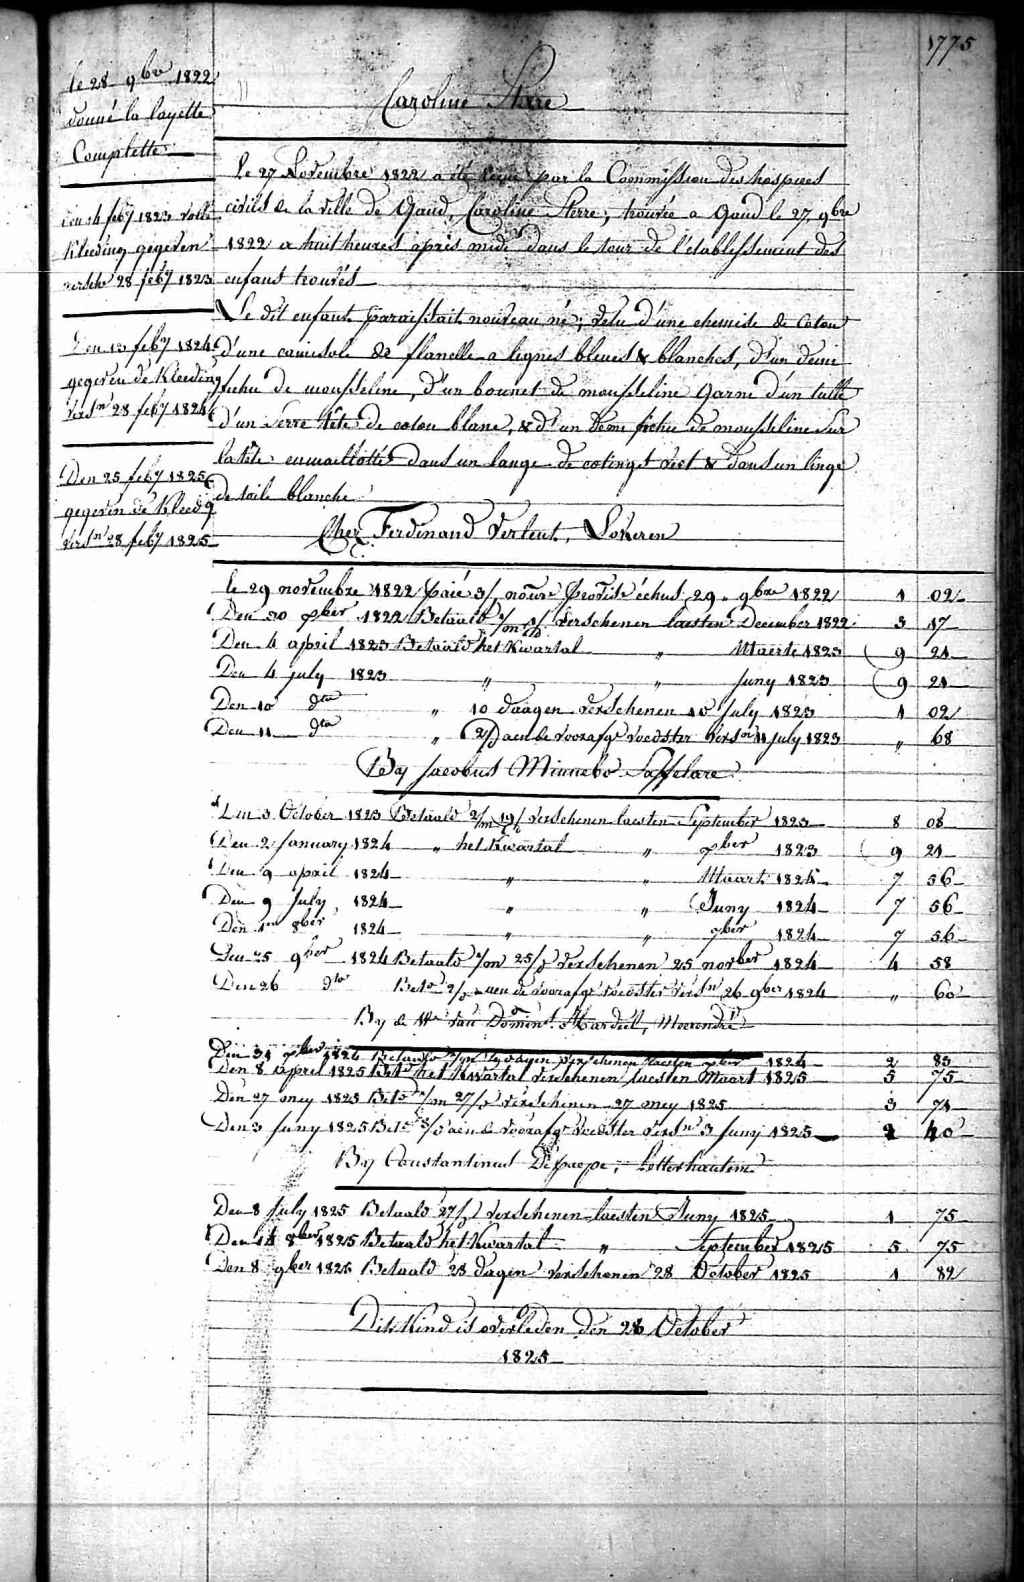 1775
Le 28 9bre 1822
donné la layette
Complette
Den 14 feby 1823 volle
Kleeding gegeven
versch 28 feby 1823
Den 13 feby 1824
gegeven de Kleeding
versn 28 feby 1824
Den 25 feby 1825
gegeven de Kleedg
versn 28 feby 1825
Caroline
Le 27 Novembre 1822 a été par la Commission des hospices
civils de la ville de Gand, Caroline ; trouvée a Gand le 27 9bre
1822 a huit heures après midi dans le tour de l'etablissement des
enfans trouvés
Le dit enfant paraissait nouveau né; vetu d'une chemise de coton
d'une camisole de flanelle a lignes bleues & blanches, d'un demi
fichu de mousseline, d'un bonnet de mousseline garni d'un tulle
d'un serre tête de coton blanc, & d'un demi fichu de mousseline sur
la tête emmaillotté dans un lange de vert & dans un linge
de toile blanche
Chez Ferdinand Lokeren
Le 29 novembre 1822 paié 3/ échus 29 9bre 1822 1 02
Den 30 xber 1822 Betaald verschenen laesten December 1822 3 17
Den 4 april 1823 Betaald het Kwartal " Maerte 1823 9 21
Den 4 july 1823 " " juny 1823 9 21
Den 10 dto " 10 daagen verschenen 10 july 1823 1 02
Den 11 dto " 2/ aen de voorafge voedster versn 11 july 1823 " 68
By Jacobus Minnebo Saffelare
Den 3 October 1823 Betaald 2/m 19/ verschenen laesten September 1823 8 08
Den 2 january 1824 " het Kwartal " xber 1823 9 21
Den 9 april 1824 " " Maart 1824 7 56
Den 9 July 1824 " " Juny 1824 7 56
Den 8ber 1824 " " 7ber 1824 7 56
Den 25 9ber 1824 Betaald 1/m 25/ verschenen 25 novber 1824 4 58
Den 26 dto Betd 2/ aen de voorafge voedster versn 26 9ber 1824 " 60
By de We van Domins , Meerendre
Den 31 xber 1824 Betaald dagen verschenen laesten xber 1824 2 83
Den 8 April 1825 Betd het Kwartal verschenen laesten Maart 1825 5 75
Den 27 mey 1825 Betd 1/m 27/ verschenen 27 mey 1825 3 71
Den 3 Juny 1825 Betd aen de voorafge voedster versn 3 Juny 1825 2 40
By Constantinus Depaepe, Letterhautem
Den 8 july 1825 Betaald 27/ verschenen laesten Juny 1825 1 75
Den 14 8ber 1825 Betaald het Kwartal " September 1825 5 75
Den 8 9ber 1825 Betaald 28 dagen verschenen 28 October 1825 1 82
Dit Kind is overleden den 28 October
1825